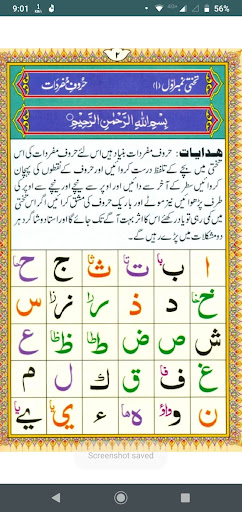 9:01
4G+
56%
۲
تختی نمبر اول (۱)
حروفِ مفردات
بِسْمِ اللهِ الرَّحْمٰنِ الرَّحِيْمِ
هدایات: حروف مفردات بنیاد ہیں اس لئے حروف مفردات کی اس
تختی میں بچے کے تلفظ درست کروائیں اور حروف کے نقطوں کی پہچان
کروائیں سطر کے آخر سے دائیں اور اوپر سے نیچے اور نیچے سے اوپر کی
طرف پڑھوائیں نیز موٹے اور باریک حروف کی مشق کرائیں اگر اس تختی
میں کمی رہی تو یاد رکھئے اس کا اثر بہت آگے تک جائے گا اور استاد و شاگرد ہر
دو مشکلات میں پڑے رہیں گے۔
ا ب با ت تا ث ثا ج ح حا
خ خا د ذ ر را ز زا س
ش ص ض ط طا ظ ظا ع
غ ف فا ق ك ل م
ن و واؤ ه ها ء ي يا ے يا
Screenshot saved